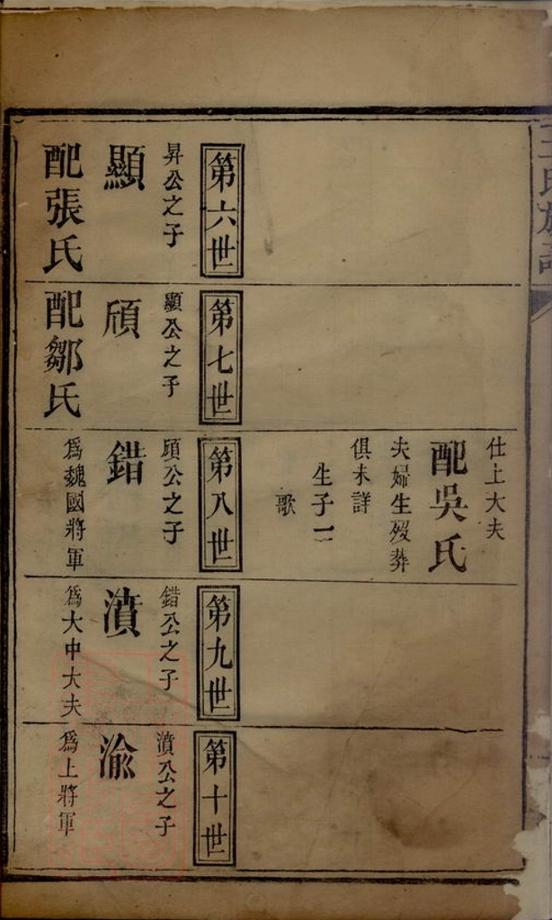 王氏族譜
仕上大夫
配吳氏
夫婦生殁葬
俱未詳
生子二
歌
第六世
昇公之子
顯
配張氏
第七世
顯公之子
頎
配鄒氏
第八世
頎公之子
錯
為魏國將軍
第九世
錯公之子
濆
為大中大夫
第十世
濆公之子
渝
為上將軍